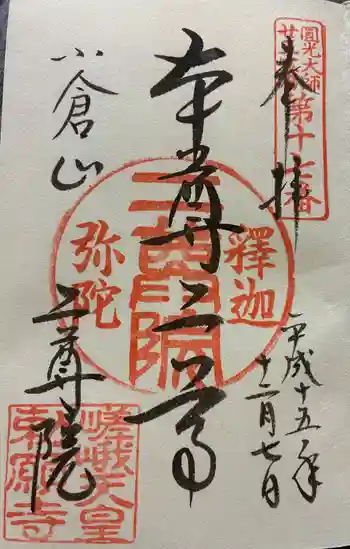 圓光大師
廿五番第十七番
奉拝
平成十五年
十二月七日
釋迦
本尊二尊
二尊院
弥陀
小倉山
二尊院
嵯峨天皇
勅願寺